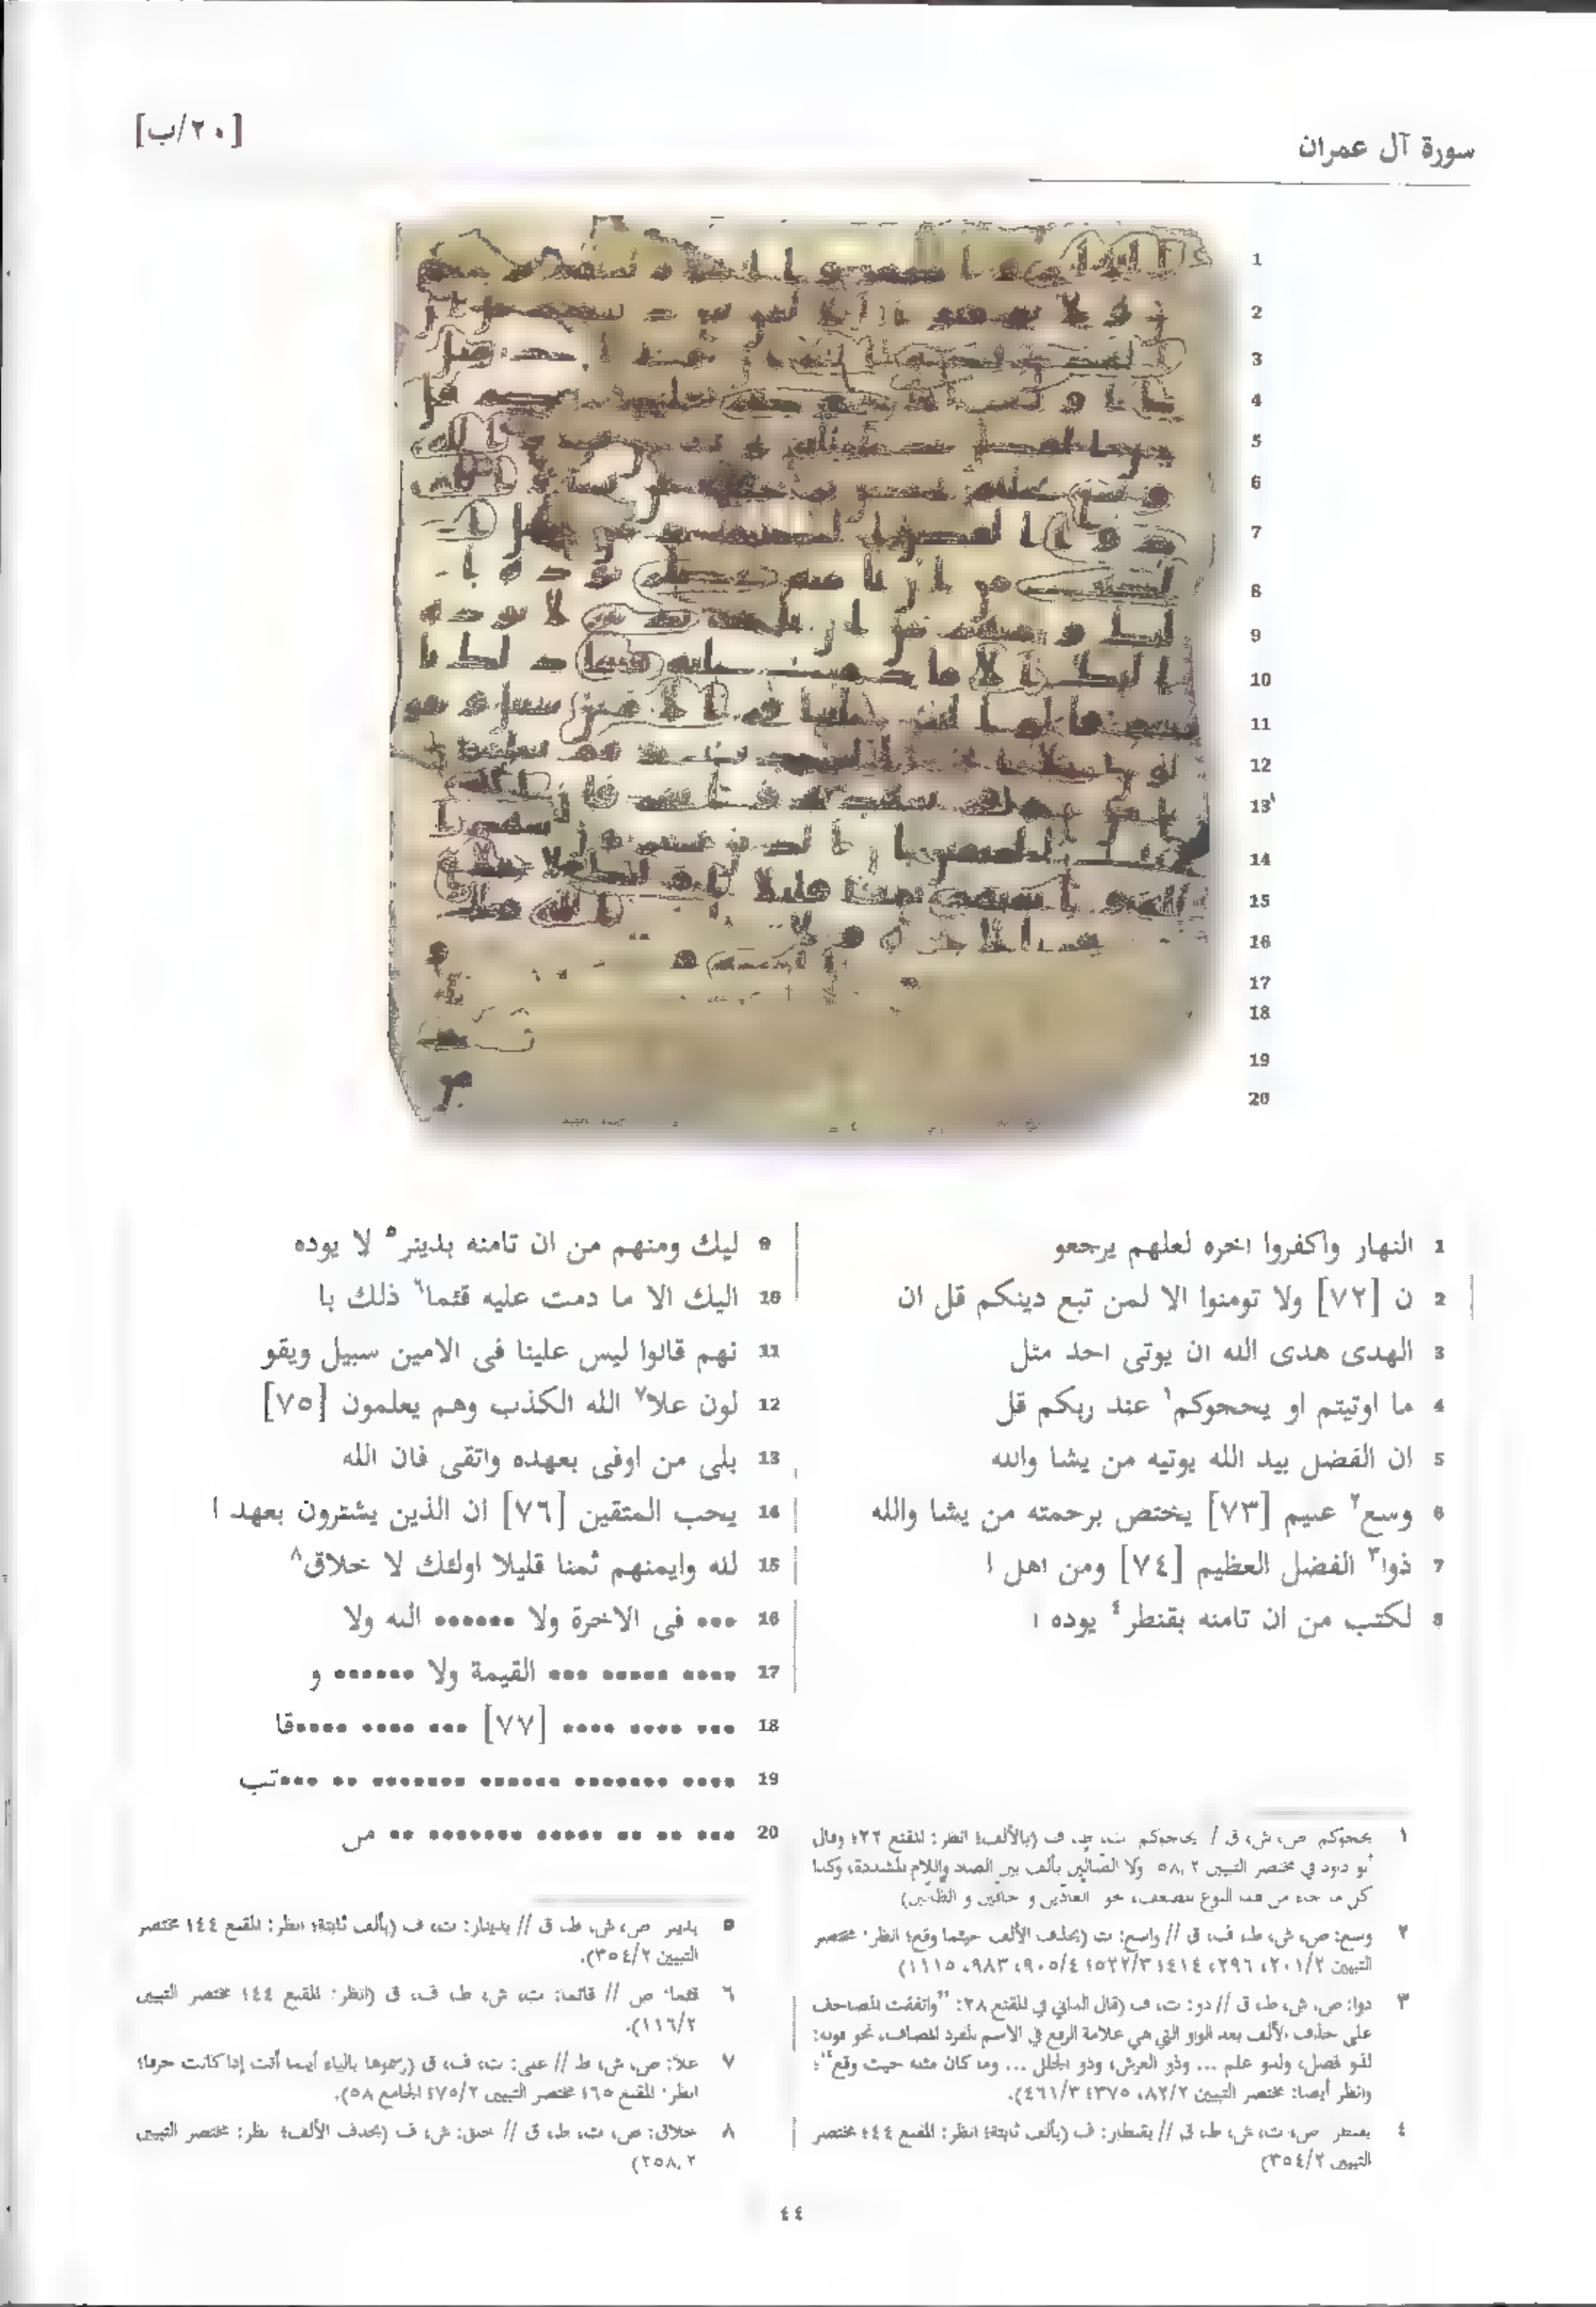 سورة آل عمران
[٢٠/ب]
1 النهار واكفروا اخره لعلهم يرجعو
2 ن [٧٢] ولا تومنوا الا لمن تبع دينكم قل ان
3 الهدى هدى الله ان يوتى احد مثل
4 ما اوتيتم او يحجوكم١ عند ربكم قل
5 ان الفضل بيد الله يوتيه من يشا والله
6 وسع٢ عليم [٧٣] يختص برحمته من يشا والله
7 ذوا٣ الفضل العظيم [٧٤] ومن اهل ا
8 لكتب من ان تامنه بقنطر٤ يوده ا
9 ليك ومنهم من ان تامنه بدينر٥ لا يوده
10 اليك الا ما دمت عليه قئما٦ ذلك با
11 نهم قالوا ليس علينا فى الامين سبيل ويقو
12 لون علا٧ الله الكذب وهم يعلمون [٧٥]
13 بلى من اوفى بعهده واتقى فان الله
14 يحب المتقين [٧٦] ان الذين يشترون بعهد ا
15 لله وايمنهم ثمنا قليلا اولئك لا خلاق٨
16 ••• فى الاخرة ولا •••••• الله ولا
17 •••• ••••• ••• القيمة ولا •••••• و
18 ••• •••• •••• [٧٧] ••• •••• ••••قا
19 •••• ••••••• •••••• ••••••• •• •••تب
20 ••• •• •• ••••• ••••••• •• من
١ يحجوكم ص، ش، ق / يحاجوكم ت، ط، ف (بالألف؛ انظر: المقنع ٢٢؛ وقال
أبو داود في مختصر التبيين ٥٨/٢ ولا الضالين بألف بين الضاد واللام المشددة، وكذا
كل ما جاء من هذا النوع المضعف، نحو العادين و حافين و الظانين)
٢ وسع: ص، ش، ط، ف، ق // واسع: ت (بحذف الألف حيثما وقع؛ انظر: مختصر
التبيين ٢٠١/٢، ٢٩٦، ٤١٤؛ ٥٢٢/٣؛ ٩٠٥/٤، ٩٨٣، ١١١٥)
٣ ذوا: ص، ش، ط، ق // ذو: ت، ف (قال الداني في المقنع ٢٨: "واتفقت المصاحف
على حذف الألف بعد الواو التي هي علامة الرفع في الاسم المفرد المضاف، نحو قوله:
لذو فضل، ولذو علم ... وذو العرش، وذو الجلل ... وما كان مثله حيث وقع"؛
وانظر أيضا: مختصر التبيين ٨٢/٢، ٣٧٥؛ ٤٦١/٣).
٤ بقنطر ص، ت، ش، ط، ق // بقنطار: ف (بألف ثابتة؛ انظر: المقنع ٤٤؛ مختصر
التبيين ٣٥٤/٢)
٥ بدينر ص، ش، ط، ق // بدينار: ت، ف (بألف ثابتة؛ انظر: المقنع ٤٤؛ مختصر
التبيين ٣٥٤/٢).
٦ قئما: ص // قائما: ت، ش، ط، ف، ق (انظر: المقنع ٤٤؛ مختصر التبيين
١١٦/٢).
٧ علا: ص، ش، ط // على: ت، ف، ق (رسموها بالياء أينما أتت إذا كانت حرفا؛
انظر: المقنع ٦٥؛ مختصر التبيين ٧٥/٢؛ الجامع ٥٨).
٨ خلاق: ص، ت، ط، ق // خلق: ش، ف (بحذف الألف؛ انظر: مختصر التبيين
٢٥٨/٢)
٤٤